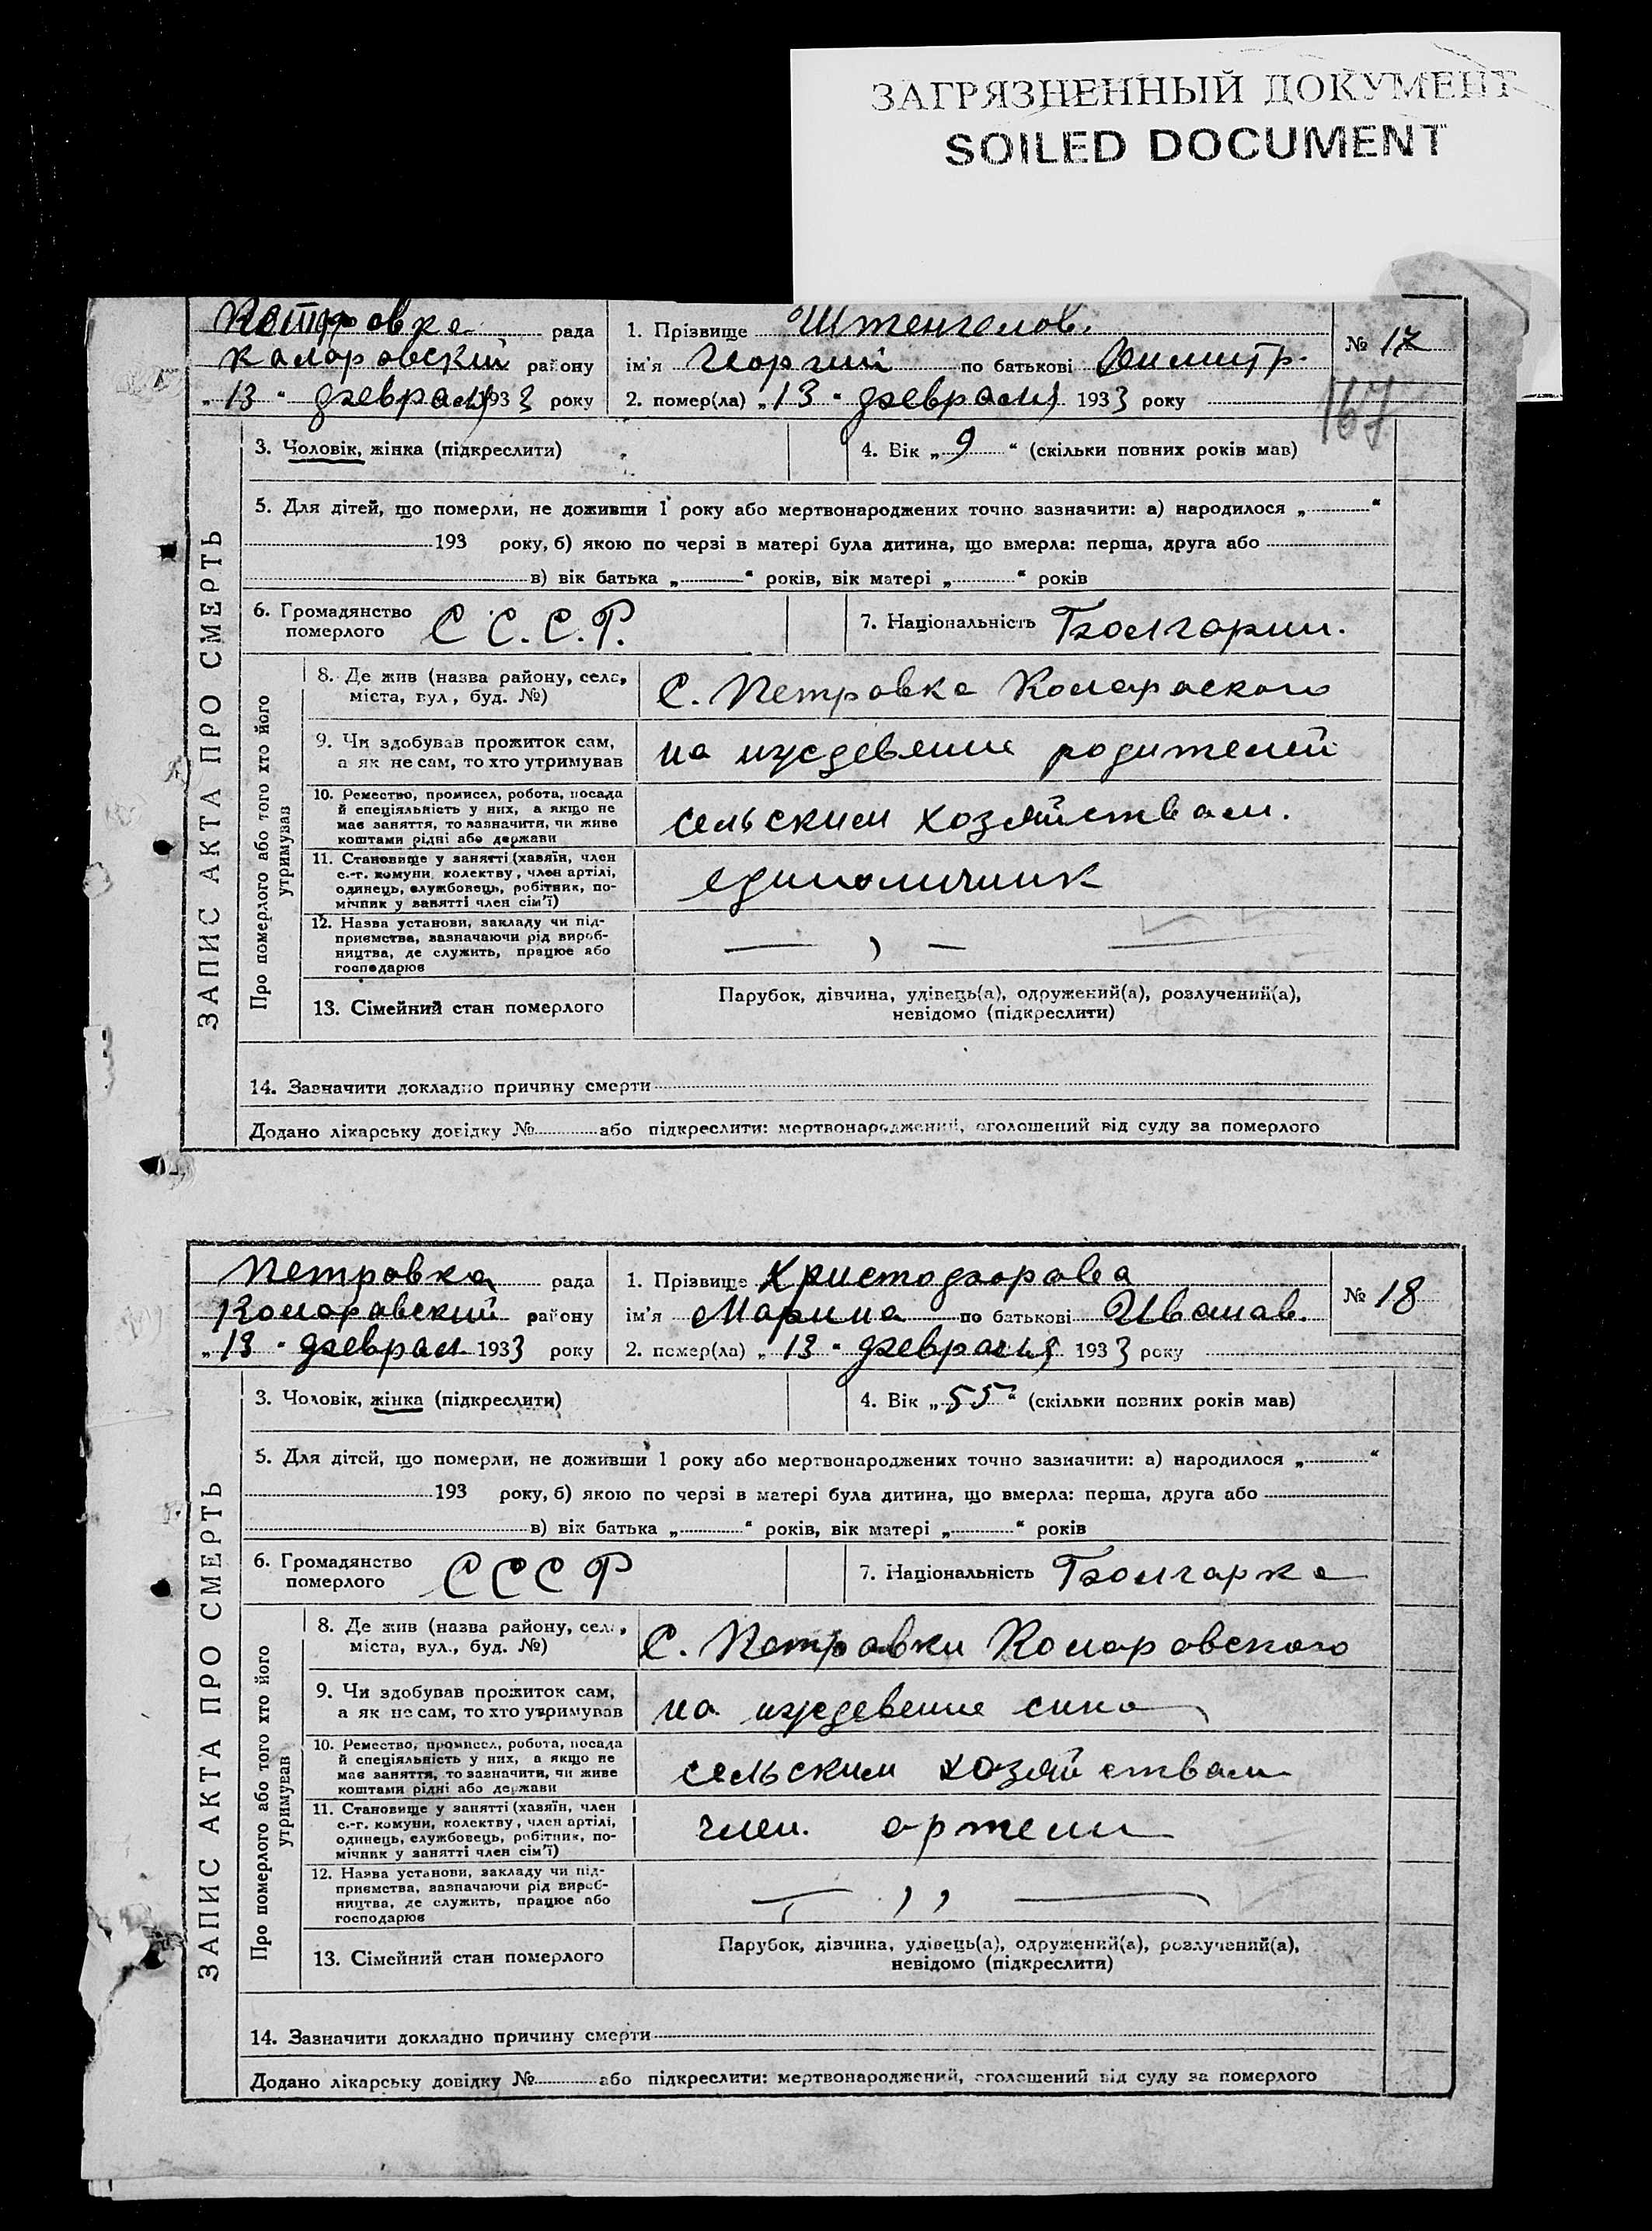 ЗАГРЯЗНЕННЫЙ ДОКУМЕНТ
SOILED DOCUMENT
Петровка рада
Каларовский району
„13“ февраля 1933 року
1. Прізвище Штенгелов.
ім'я Георгий по батькові Димитр.
2. помер(ла) „13“ февраля 1933 року
№ 17
167
3. Чоловік, жінка (підкреслити)
4. Вік „9“ (скільки повних років мав)
5. Для дітей, що померли, не доживши 1 року або мертвонароджених точно зазначити: а) народилося „ “
193 року, б) якою по черзі в матері була дитина, що вмерла: перша, друга або
в) вік батька „ “ років, вік матері „ “ років
6. Громадянство
померлого С.С.С.Р.
7. Національність Болгарин.
ЗАПИС АКТА ПРО СМЕРТЬ
Про померлого або того хто його
утримував
8. Де жив (назва району, села,
міста, вул., буд. №)
С. Петровка Коларовского
9. Чи здобував прожиток сам,
а як не сам, то хто утримував
на иждевение родителей
10. Ремество, промисел, робота, посада
й спеціяльність у них, а якщо не
має заняття, то зазначити, чи живе
коштами рідні або держави
сельским хозяйствам.
11. Становище у занятті (хазяїн, член
с.-г. комуни, колективу, член артілі,
одинець, службовець, робітник, по-
мічник у занятті член сім'ї)
единоличник
12. Назва установи, закладу чи під-
приємства, зазначаючи рід вироб-
ництва, де служить, працює або
господарює
— , —
13. Сімейний стан померлого
Парубок, дівчина, удівець(а), одружений(а), розлучений(а),
невідомо (підкреслити)
14. Зазначити докладно причину смерти
Додано лікарську довідку № або підкреслити: мертвонароджений, оголошений від суду за померлого
Петровка рада
Коларовский району
„13“ феврал 1933 року
1. Прізвище Христофорова
ім'я Марина по батькові Иванав.
2. помер(ла) „13“ февраля 1933 року
№ 18
3. Чоловік, жінка (підкреслити)
4. Вік „55“ (скільки повних років мав)
5. Для дітей, що померли, не доживши 1 року або мертвонароджених точно зазначити: а) народилося „ “
193 року, б) якою по черзі в матері була дитина, що вмерла: перша, друга або
в) вік батька „ “ років, вік матері „ “ років
6. Громадянство
померлого СССР
7. Національність Болгарка
ЗАПИС АКТА ПРО СМЕРТЬ
Про померлого або того хто його
утримував
8. Де жив (назва району, села,
міста, вул., буд. №)
С. Петровки Коларовского
9. Чи здобував прожиток сам,
а як не сам, то хто утримував
на иждевение сина
10. Ремество, промисел, робота, посада
й спеціяльність у них, а якщо не
має заняття, то зазначити, чи живе
коштами рідні або держави
сельским хозяйствам
11. Становище у занятті (хазяїн, член
с.-г. комуни, колективу, член артілі,
одинець, службовець, робітник, по-
мічник у занятті член сім'ї)
член. артели
12. Назва установи, закладу чи під-
приємства, зазначаючи рід вироб-
ництва, де служить, працює або
господарює
— , , —
13. Сімейний стан померлого
Парубок, дівчина, удівець(а), одружений(а), розлучений(а),
невідомо (підкреслити)
14. Зазначити докладно причину смерти
Додано лікарську довідку № або підкреслити: мертвонароджений, оголошений від суду за померлого